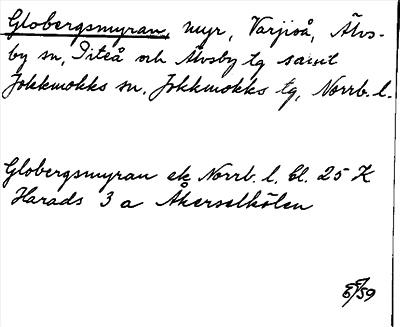 Globergsmyran, myr, Varjiså, Älvs-
by sn, Piteå och Älvsby tg samt
Jokkmokks sn, Jokkmokks tg, Norrb. l.
Globergsmyran ek Norrb. l. bl. 25 K
Harads 3 a Åkerselkölen
/59